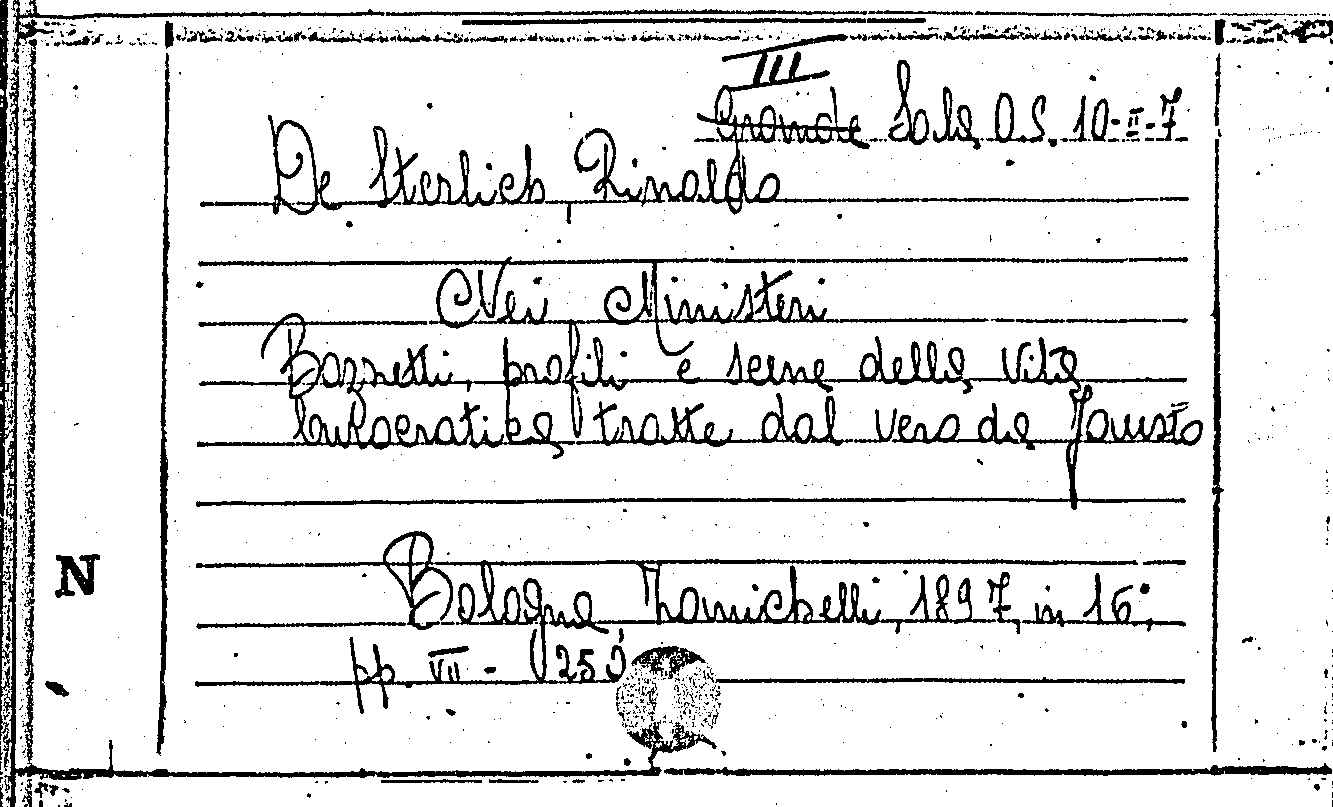 III
Grande Sala O.S. 10-II-7
De Sterlich, Rinaldo
Nei Ministeri
Bozzetti, profili e scene della vita
burocratica tratte dal vero da Fausto
N
Bologna Zanichelli, 1897, in 16°,
pp. VII - 250